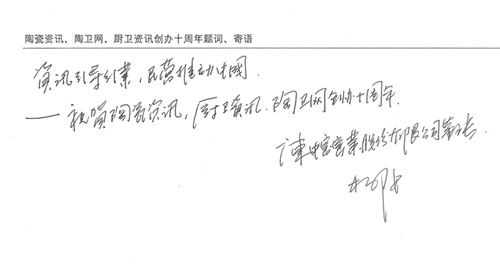 陶瓷资讯、陶卫网、厨卫资讯创办十周年题词、寄语
资讯引导行業，民营推动中國.
——祝贺陶瓷资讯，厨卫资讯.陶卫网创办十周年.
窑業股份有限公司董事长